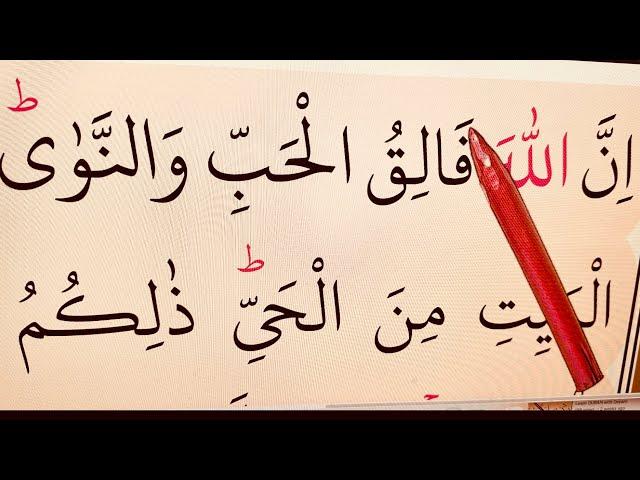 اِنَّ اللّٰهَ فَالِقُ الْحَبِّ وَالنَّوٰی ؕ
الْمَيِّتِ مِنَ الْحَيِّ ؕ ذٰلِكُمُ